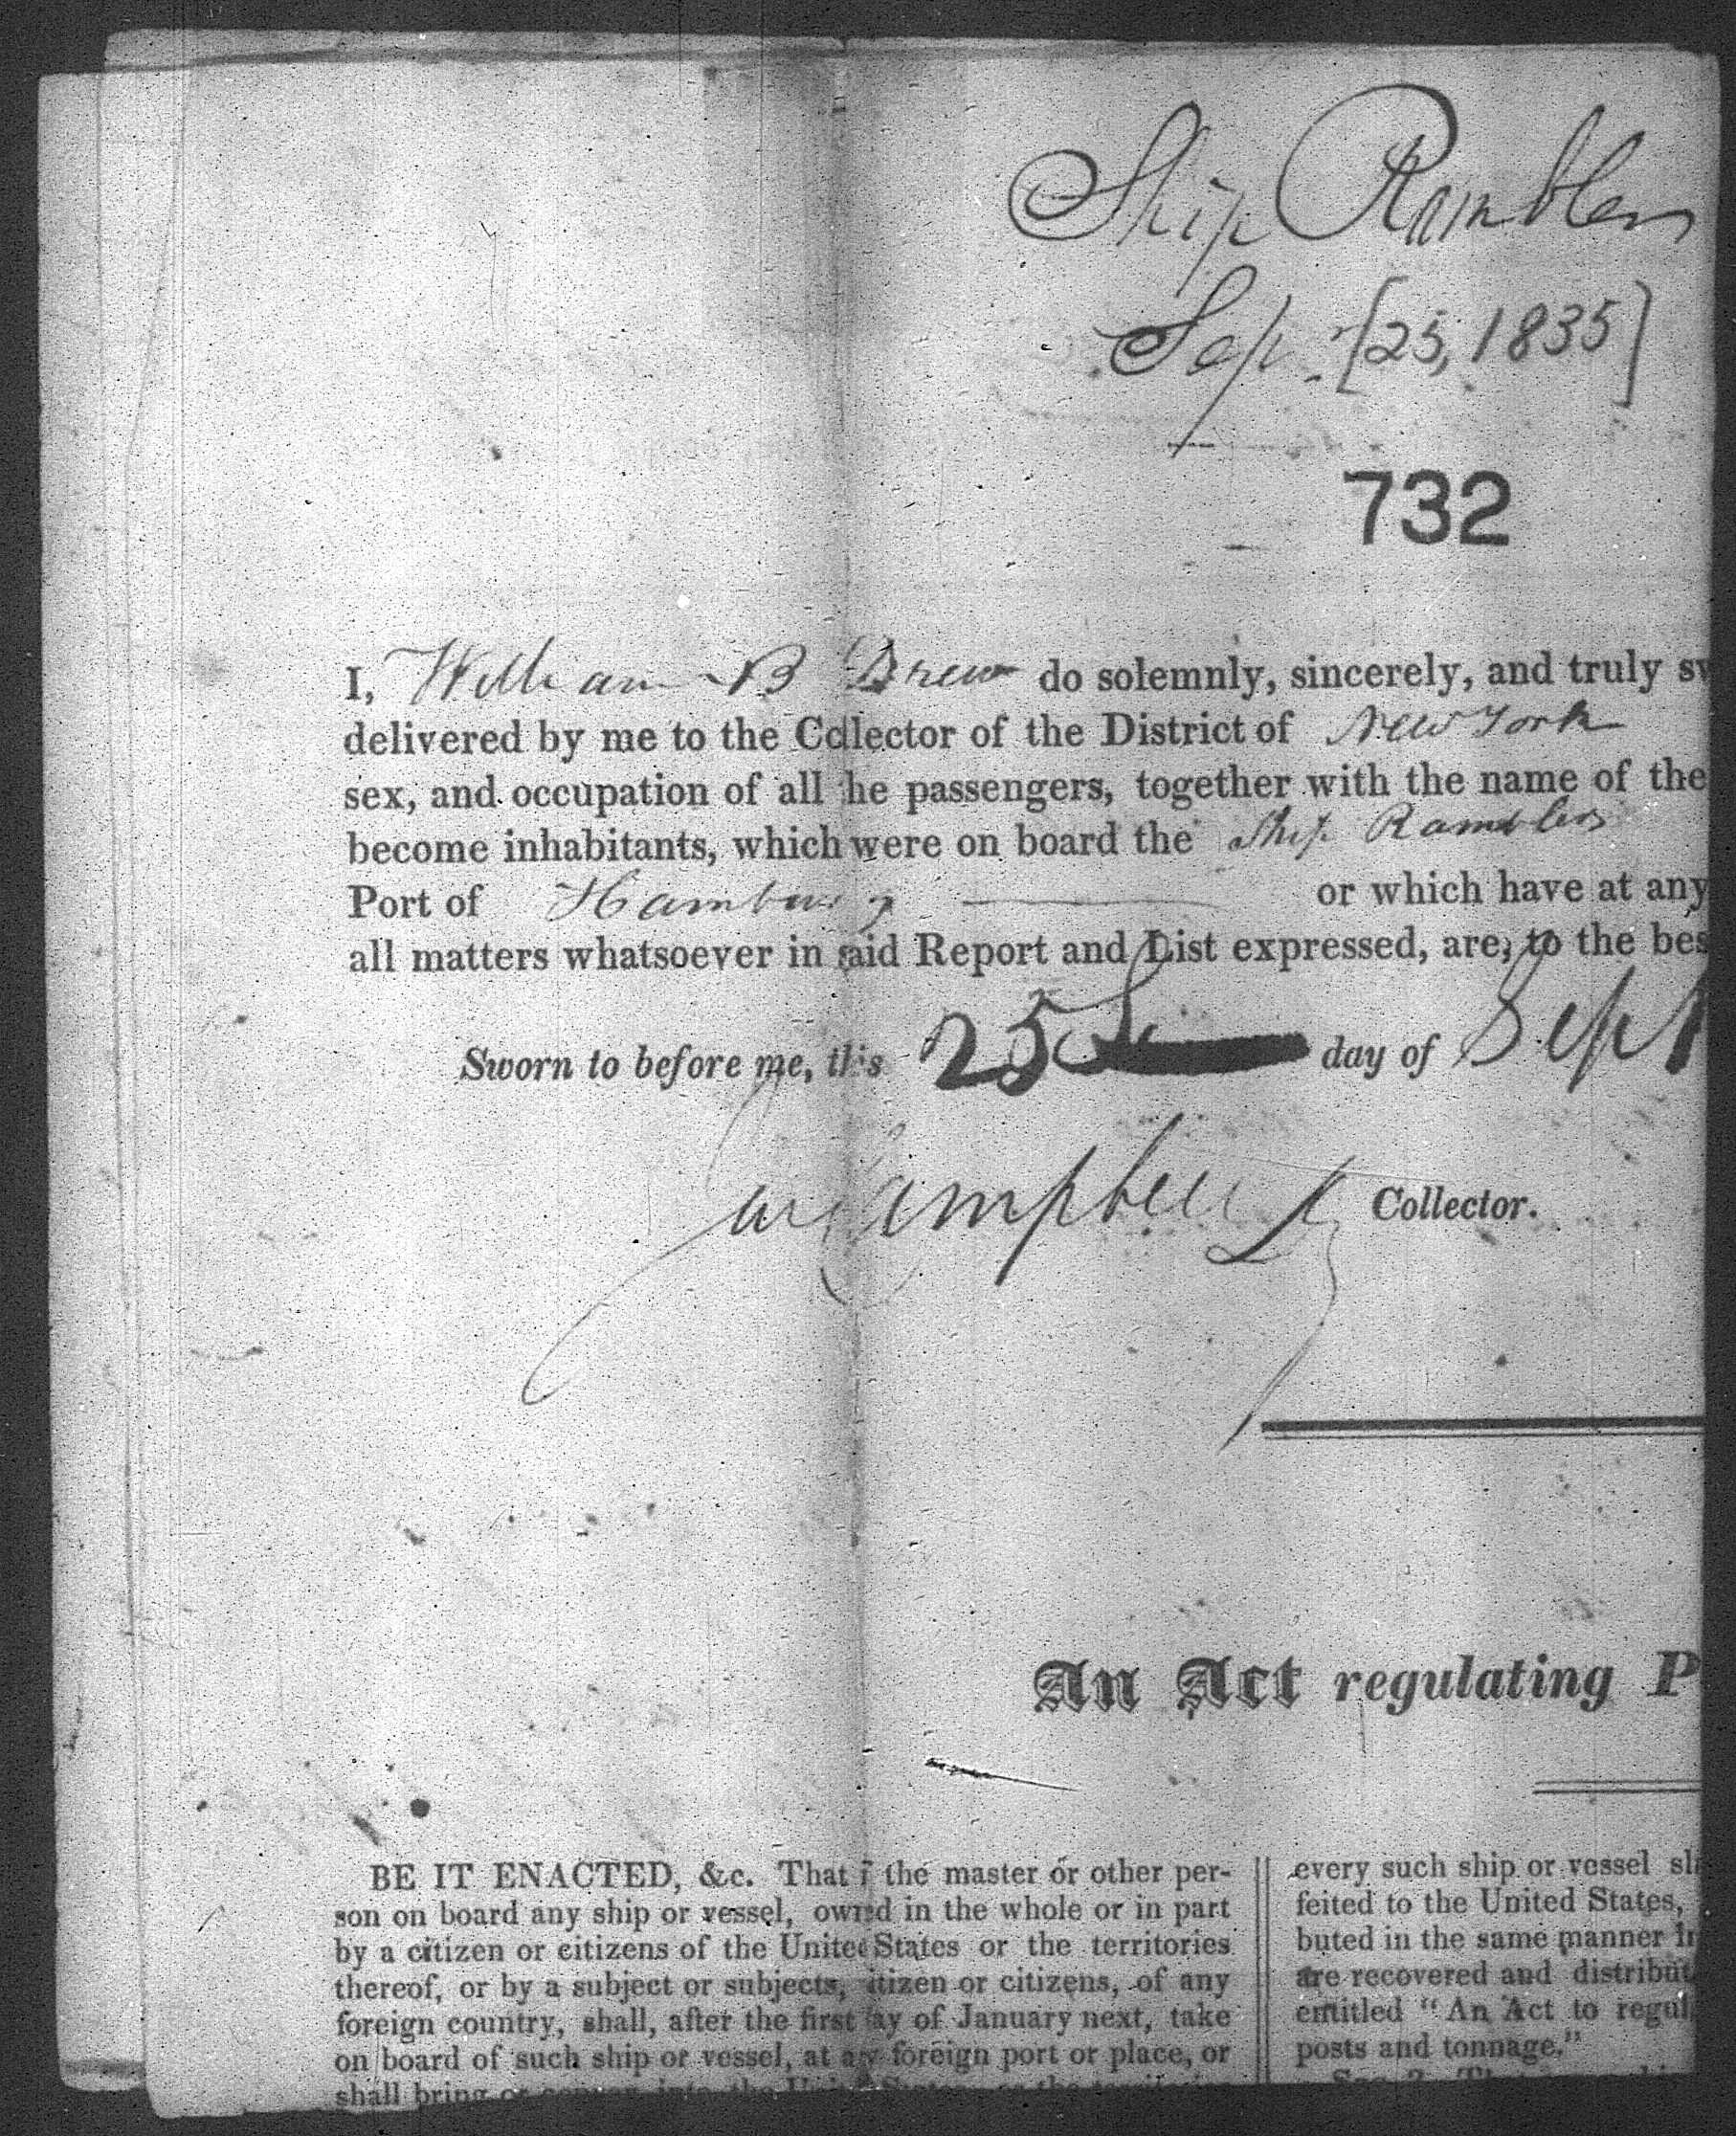 Ship Rambler
Sep. [25, 1835]
732
I, William B Drew do solemnly, sincerely, and truly sw
delivered by me to the Collector of the District of New York
sex, and occupation of all the passengers, together with the name of the
become inhabitants, which were on board the Ship Rambler
Port of Hamburg or which have at any
all matters whatsoever in said Report and List expressed, are, to the bes
Sworn to before me, this 25th day of Sept
Campbell Collector.
An Act regulating P
BE IT ENACTED, &c. That if the master or other per-
son on board any ship or vessel, owned in the whole or in part
by a citizen or citizens of the United States or the territories
thereof, or by a subject or subjects, citizen or citizens, of any
foreign country, shall, after the first day of January next, take
on board of such ship or vessel, at any foreign port or place, or
shall bring or convey into the United States or the
every such ship or vessel sha
feited to the United States,
buted in the same manner in
are recovered and distribut
entitled "An Act to regul
posts and tonnage."